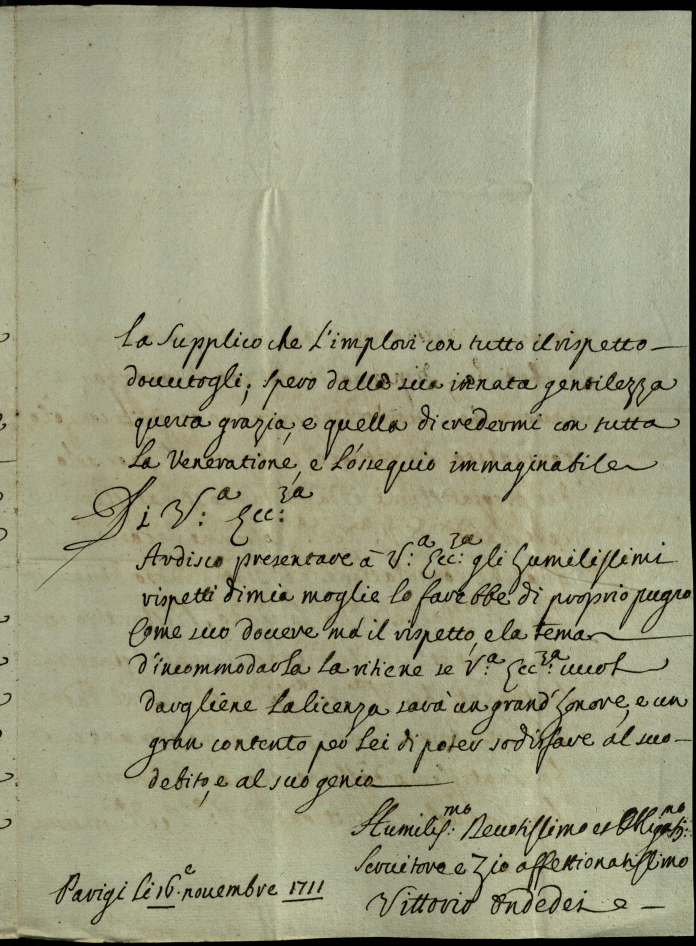 La Supplico che L'implori con tutto il rispetto
dovutogli; spero dalla sua innata gentilezza
questa grazia, e quella di credermi con tutta
La Veneratione, e L'ossequio immaginabile
Di V.ª Ecc.za
Ardisco presentare à V.ª Ecc.za gli humilissimi
rispetti di mia moglie lo farebbe di proprio pugno
Come suo dovere má il rispetto, e la tema
d'incommodarla La ritiene se V.ª Ecc.za vuol
dargliene La licenza sarà un grand'honore, e un
gran contento per Lei di poter sodisfare al suo
debito, e al suo genio
Humiliss.mo Devotissimo et Obligatiss.mo
Servitore e Zio affettionatissimo
Parigi Li 16.e novembre 1711
Vittorio Ondedei